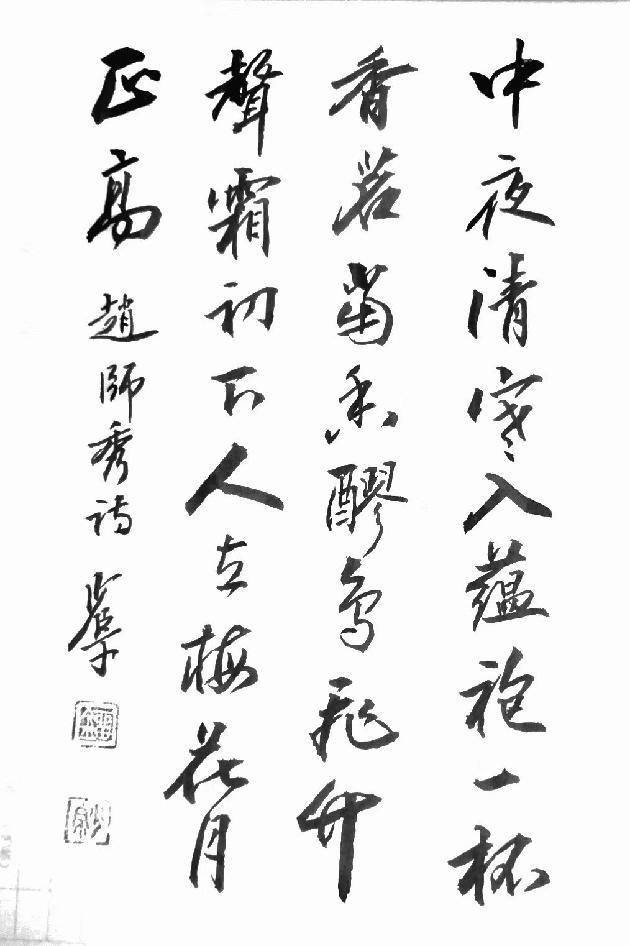 中夜清寒入蘊袍一杯
香茗當香醪鳥飛竹
聲霜初下人立梅花月
正高 趙師秀詩